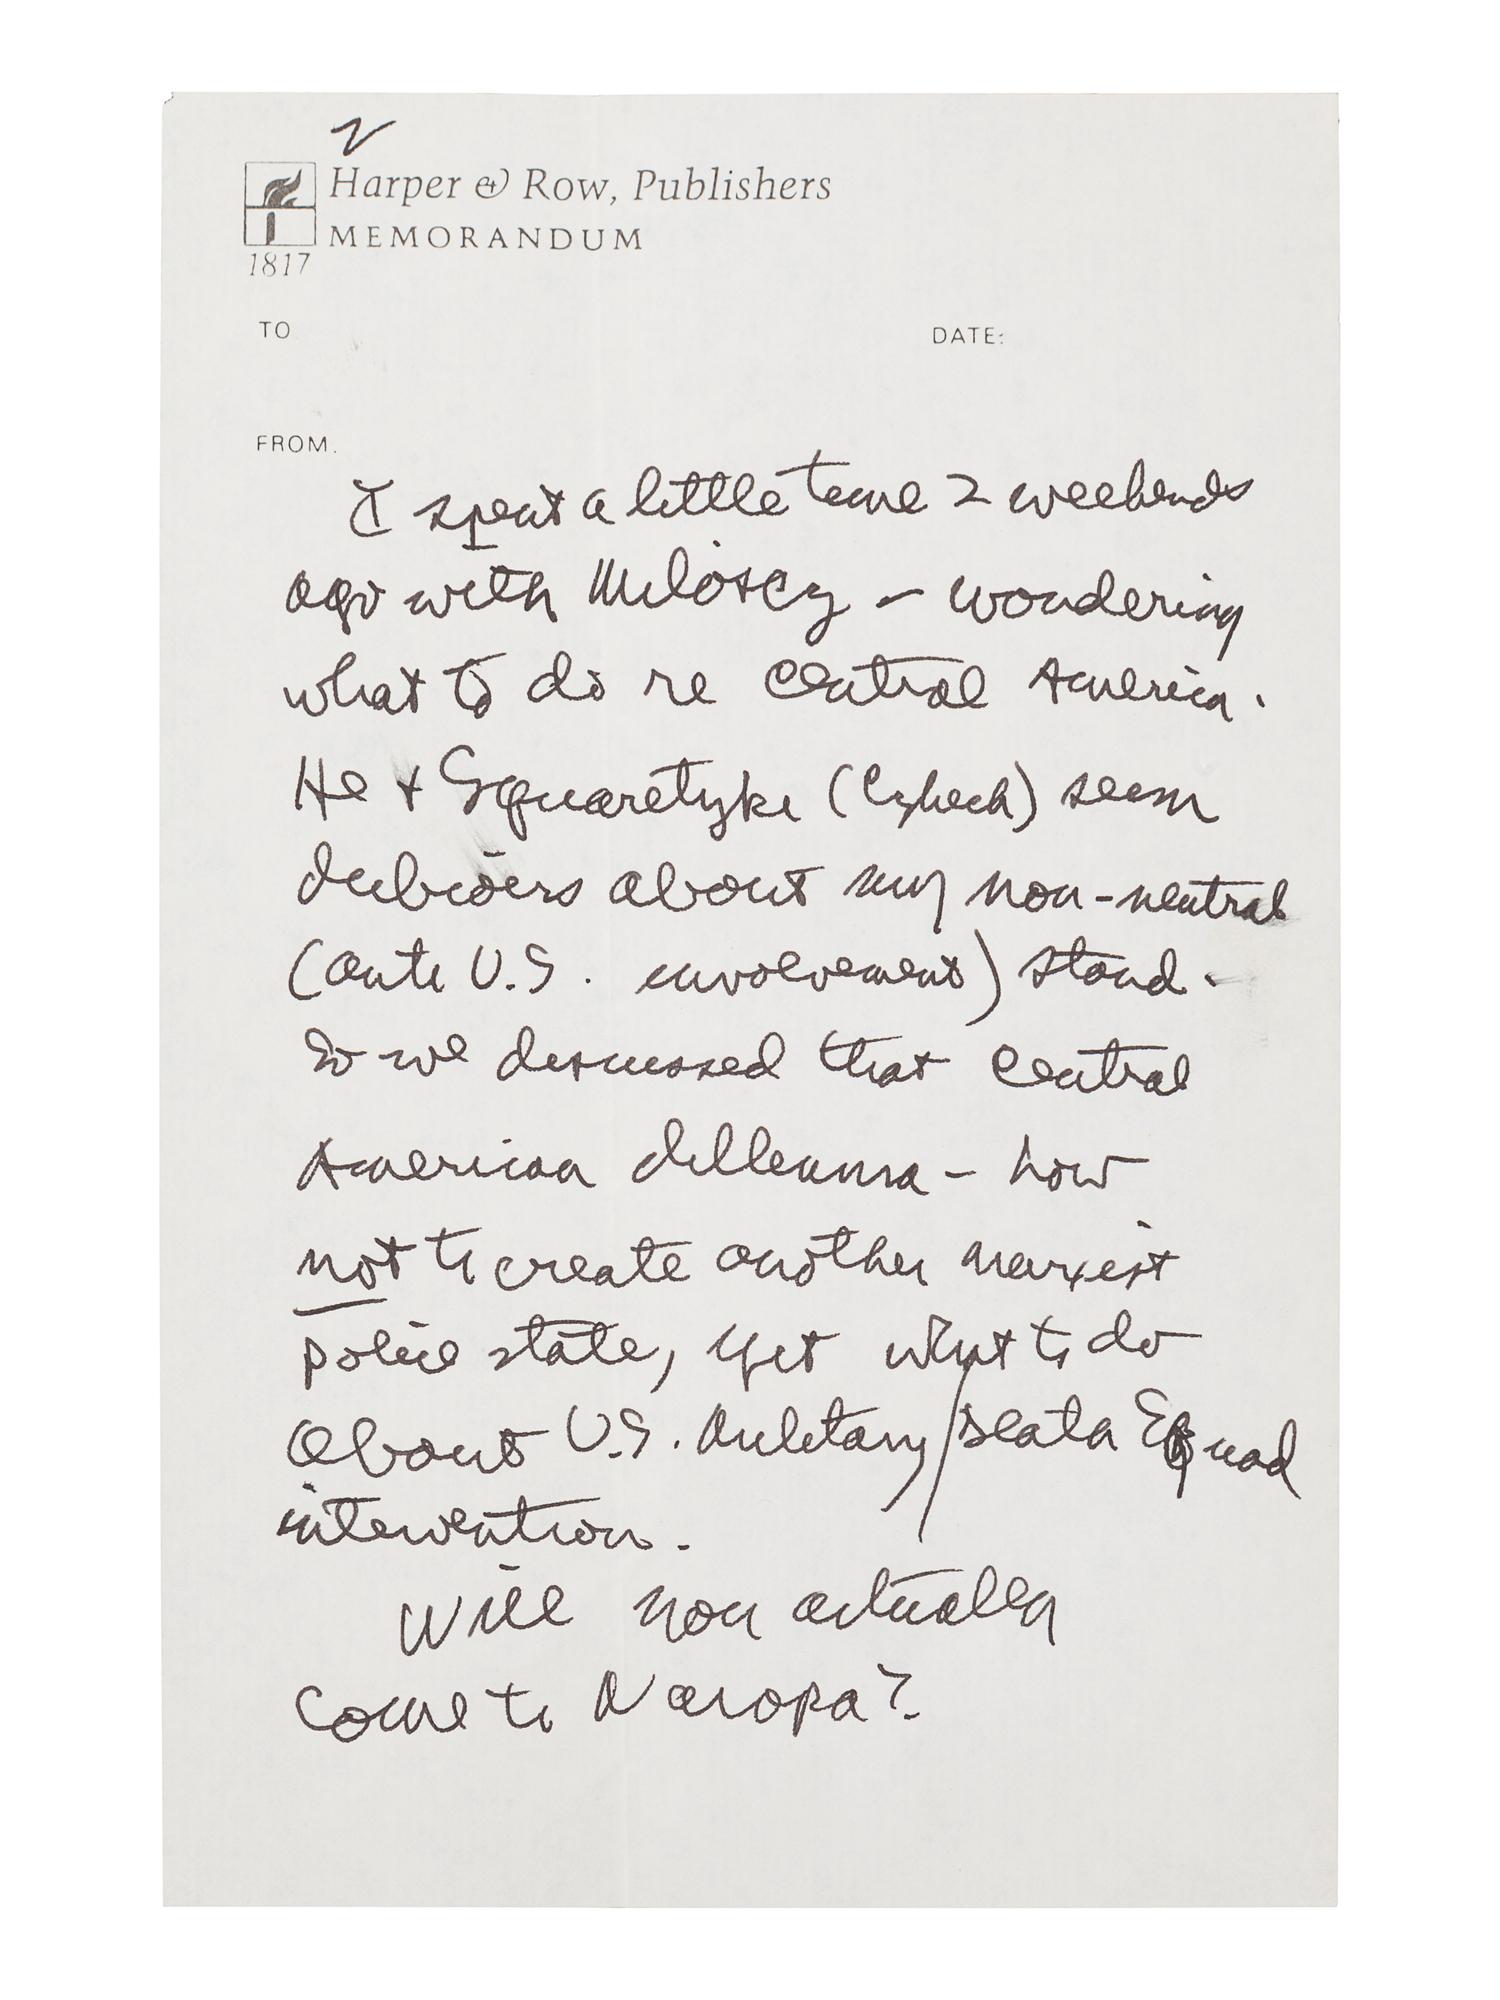 2
Harper & Row, Publishers
MEMORANDUM
1817
TO
DATE:
FROM.
I spent a little time 2 weekends
ago with Miloscz – wondering
what to do re Central America.
He & (Czhech) seem
dubious about my non-neutral
(anti U.S. involvement) stand.
So we discussed that Central
American dillemma – how
not to create another marxist
police state, yet what to do
about U.S. Military/Death Squad
intervention.
Will you actually
come to Naropa?